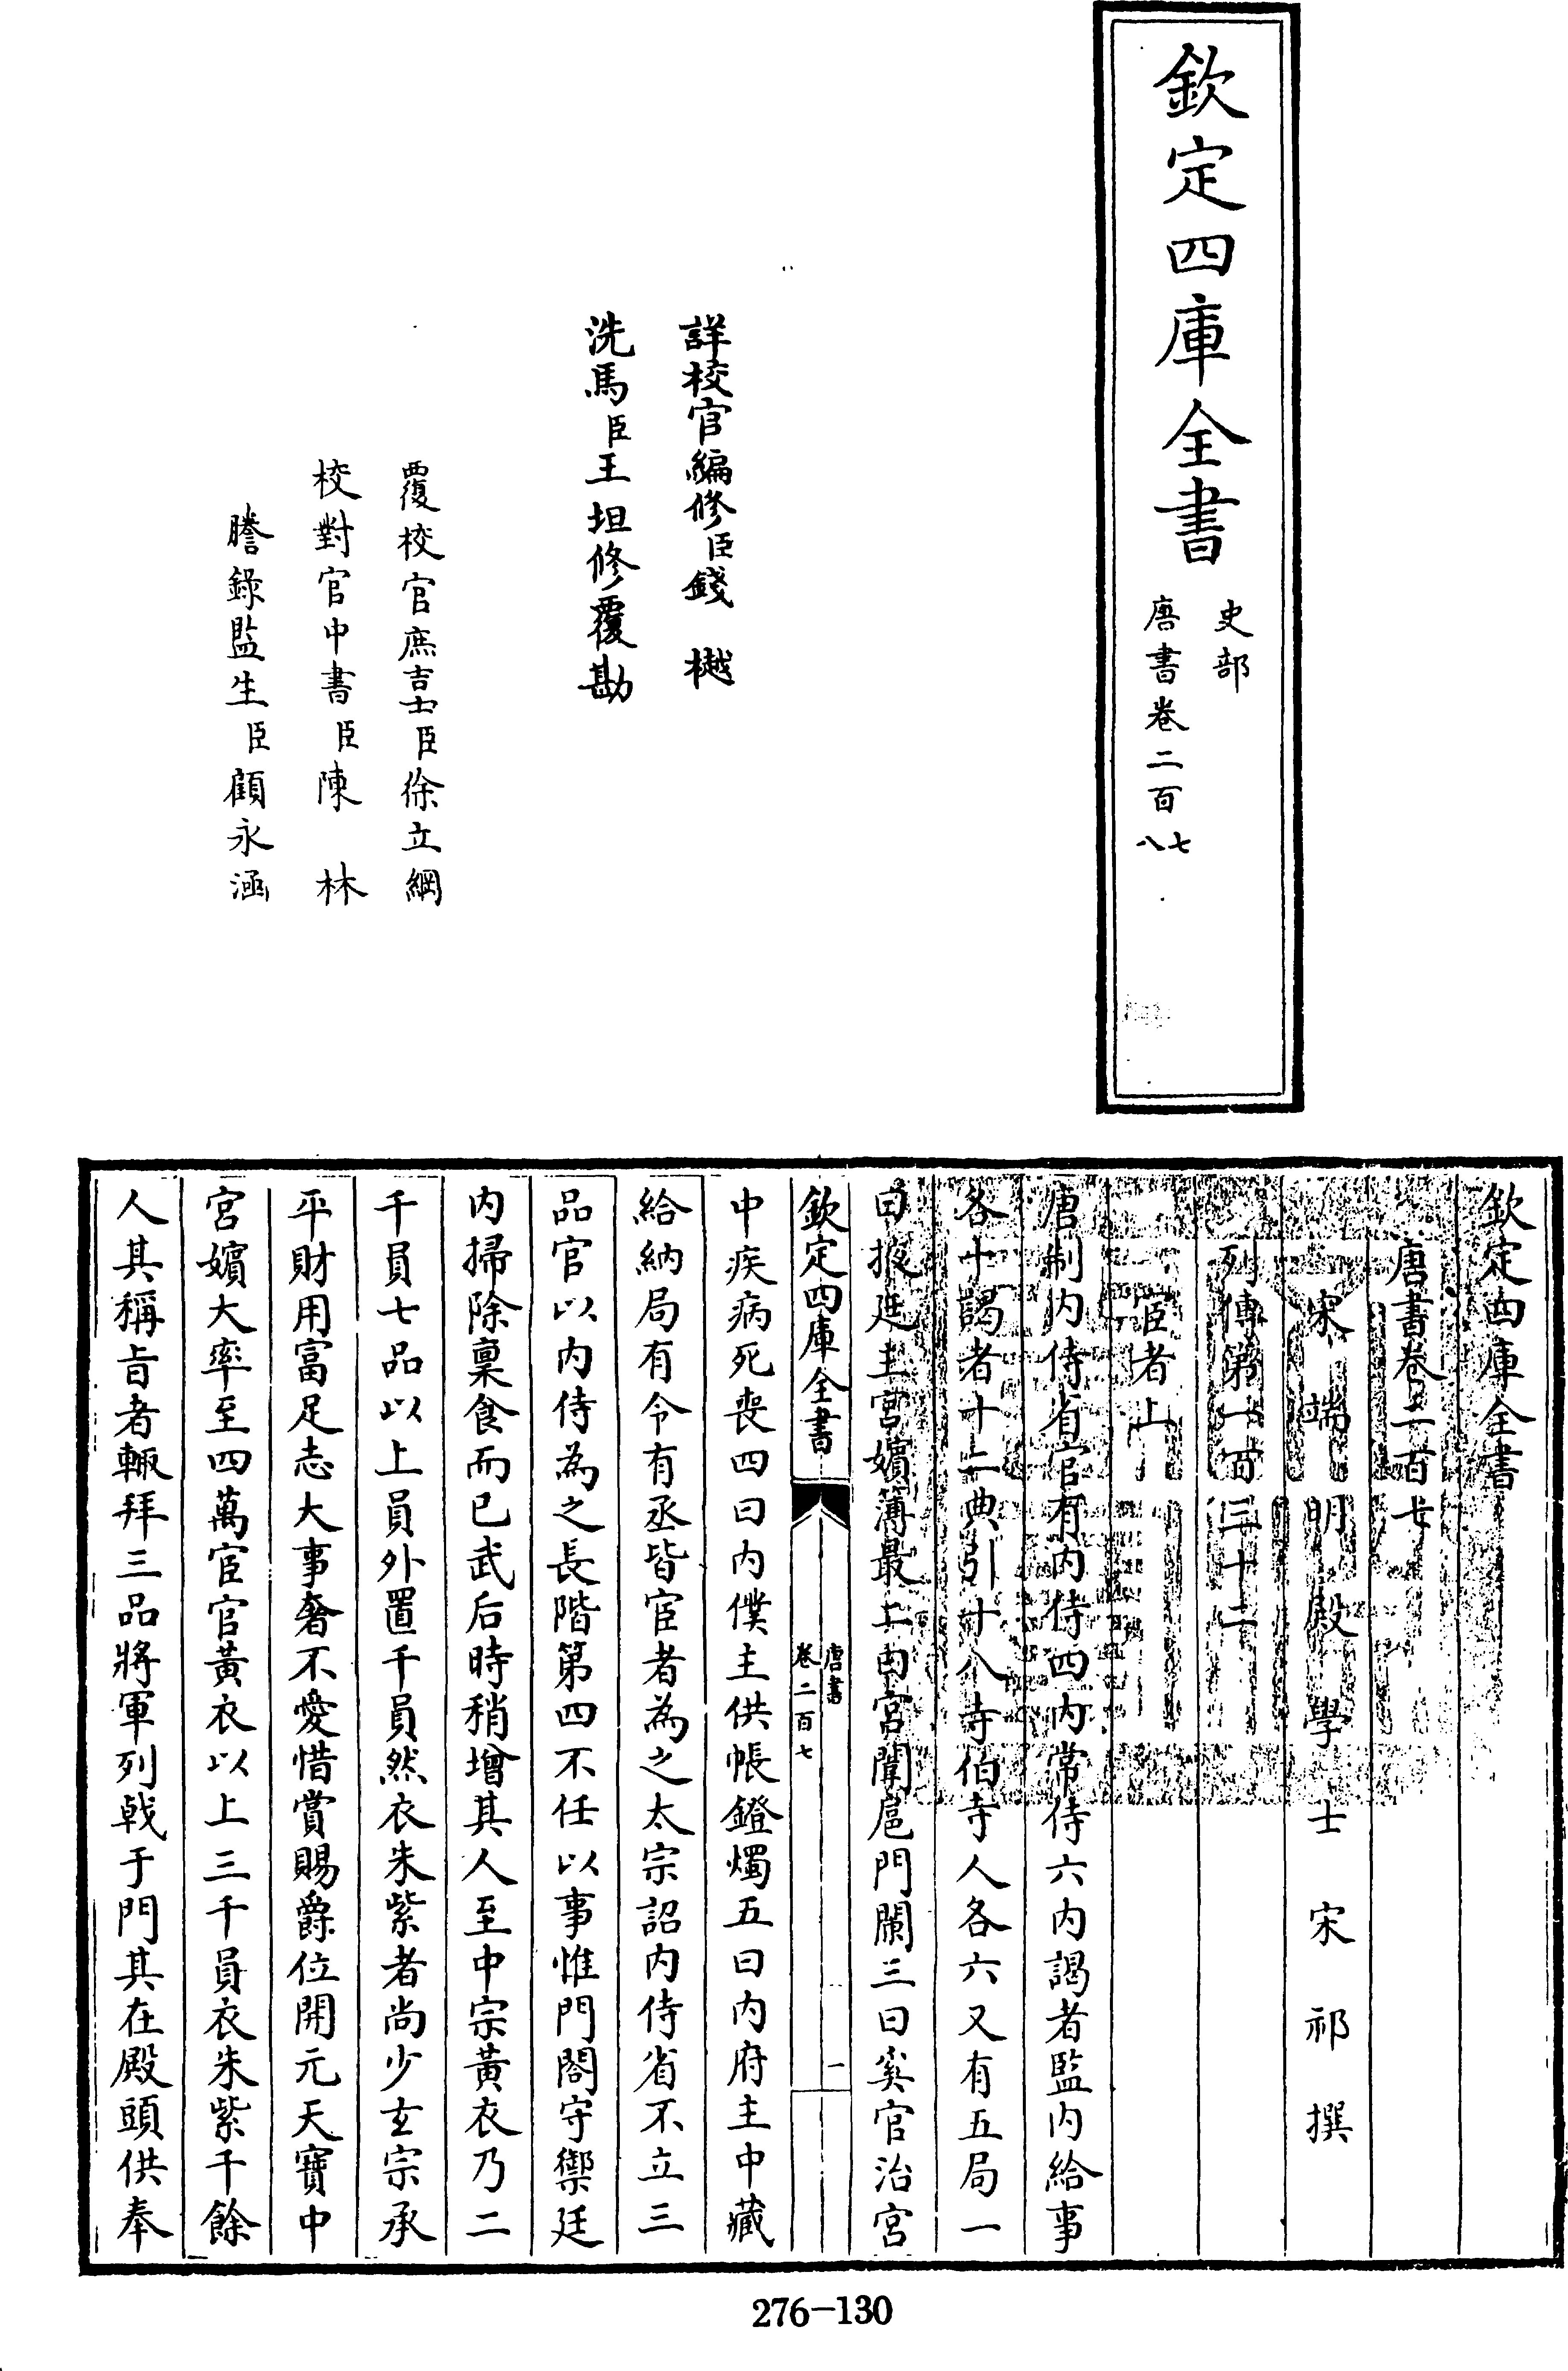 欽定四庫全書
史部
唐書卷二百七
八
詳校官編修臣錢樾
洗馬臣王坦修覆勘
覆校官庶吉士臣徐立綱
校對官中書臣陳林
謄錄監生臣顧永涵
欽定四庫全書
唐書卷二百七
宋端明殿學士宋祁撰
列傳第一百三十二
宦者上
唐制内侍省官有内侍四内常侍六内謁者監内給事
各十謁者十二典引十八寺伯寺人各六又有五局一
曰掖廷主宮嬪簿最二曰宮闈扈門闌三曰奚官治宮
欽定四庫全書
唐書
卷二百七
一
中疾病死喪四曰内僕主供帳鐙燭五曰内府主中藏
給納局有令有丞皆宦者為之太宗詔内侍省不立三
品官以内侍為之長階第四不任以事惟門閤守禦廷
内掃除稟食而已武后時稍增其人至中宗黃衣乃二
千員七品以上員外置千員然衣朱紫者尚少玄宗承
平財用富足志大事奢不愛惜賞賜爵位開元天寶中
宮嬪大率至四萬宦官黃衣以上三千員衣朱紫千餘
人其稱旨者輒拜三品將軍列戟于門其在殿頭供奉
276-130